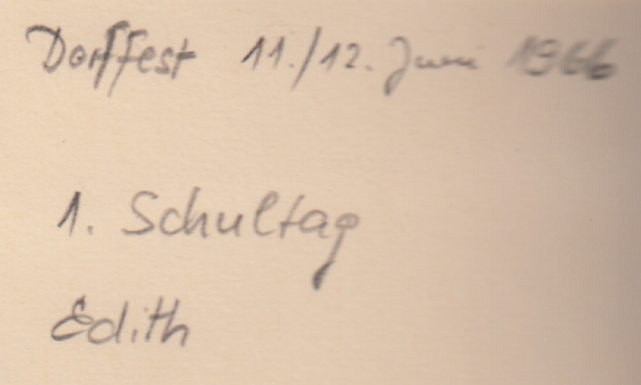 Dorffest 11./12. Juni 1966
1. Schultag
Edith